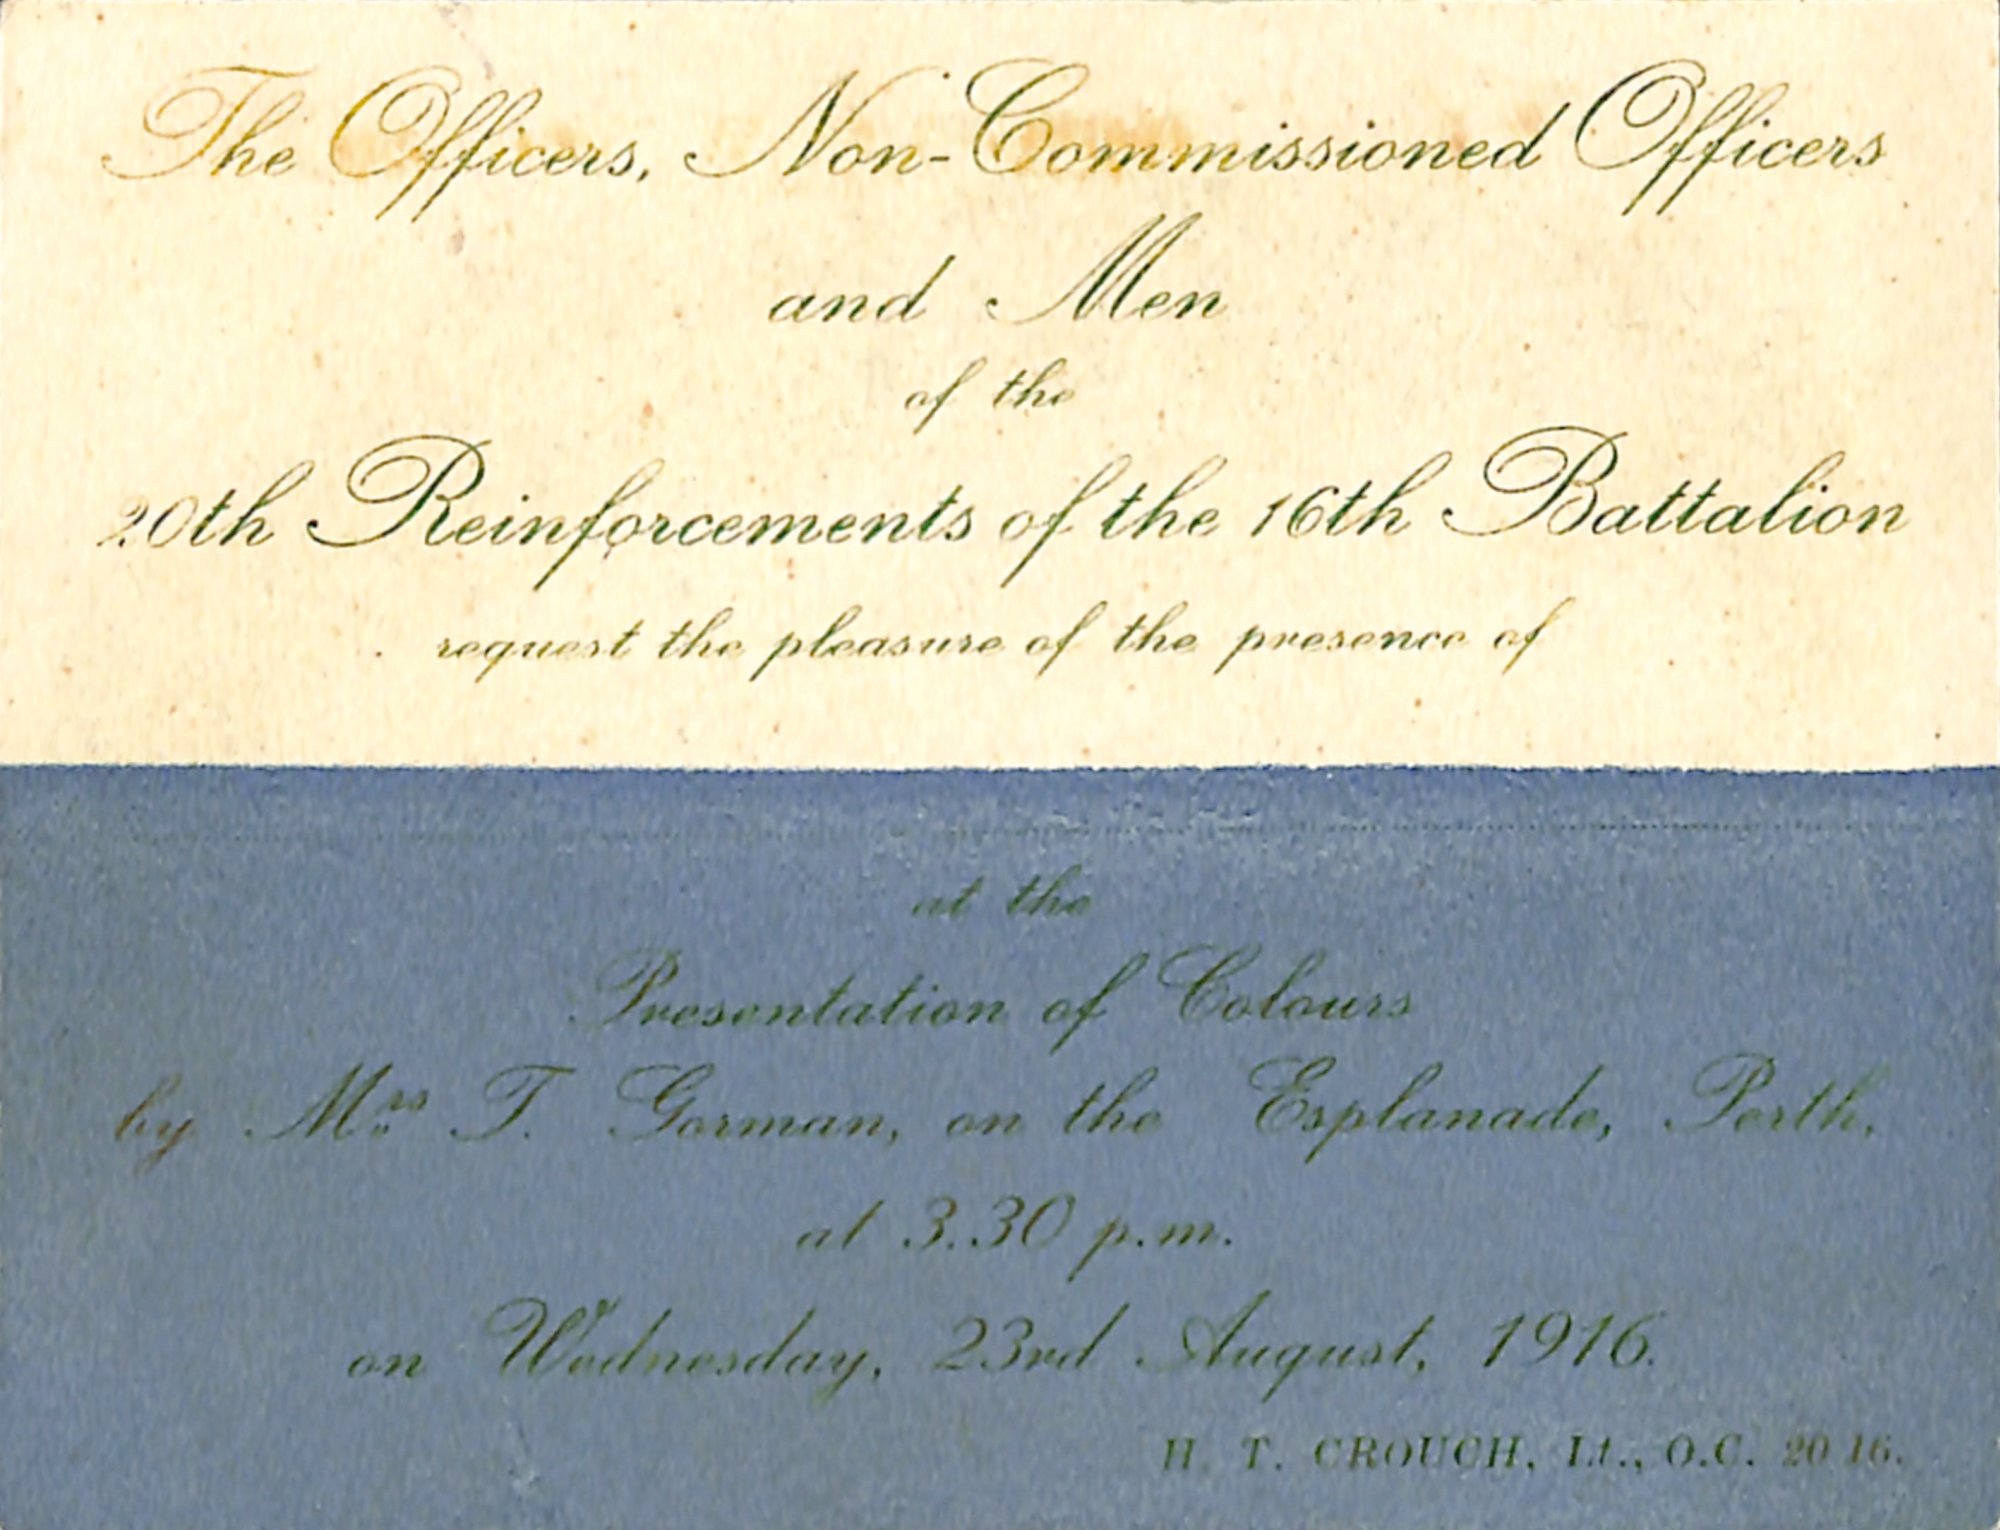 The Officers, Non-Commissioned Officers
and Men
of the
20th Reinforcements of the 16th Battalion
request the pleasure of the presence of
at the
Presentation of Colours
by Mrs T. Gorman, on the Esplanade, Perth,
at 3.30 p.m.
on Wednesday, 23rd August, 1916.
H. T. CROUCH, Lt., O.C. 20 16.